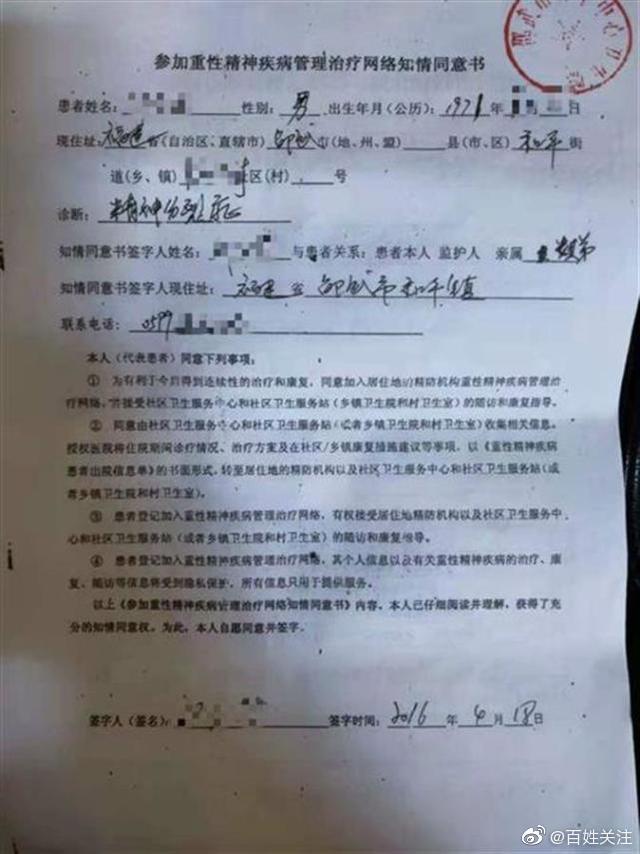 参加重性精神疾病管理治疗网络知情同意书
患者姓名: 性别: 男 出生年月(公历): 1971 年 日
现住址: 福建省(自治区、直辖市) 邵武市(地、州、盟) 县(市、区) 和平 街
道(乡、镇) 社区(村) 号
诊断: 精神分裂症
知情同意书签字人姓名: 与患者关系: 患者本人 监护人 亲属
知情同意书签字人现住址: 福建省邵武市和平镇
联系电话: 0599
本人(代表患者)同意下列事项:
① 为有利于今后得到连续性的治疗和康复,同意加入居住地的精防机构重性精神疾病管理治
疗网络,并接受社区卫生服务中心和社区卫生服务站(乡镇卫生院和村卫生室)的随访和康复指导。
② 同意由社区卫生服务中心和社区卫生服务站(或者乡镇卫生院和村卫生室)收集相关信息。
授权医院将住院期间诊疗情况、治疗方案及在社区/乡镇康复措施建议等事项,以《重性精神疾病
患者出院信息单》的书面形式,转至居住地的精防机构以及社区卫生服务中心和社区卫生服务站(或
者乡镇卫生院和村卫生室)。
③ 患者登记加入重性精神疾病管理治疗网络,有权接受居住地精防机构以及社区卫生服务中
心和社区卫生服务站(或者乡镇卫生院和村卫生室)的随访和康复指导。
④ 患者登记加入重性精神疾病管理治疗网络,其个人信息以及有关重性精神疾病的治疗、康
复、随访等信息将受到隐私保护,所有信息只用于提供服务。
以上《参加重性精神疾病管理治疗网络知情同意书》内容,本人已仔细阅读并理解,获得了充
分的知情同意权。为此,本人自愿同意并签字。
签字人(签名): 签字时间: 2016 年 4 月 18 日
@百姓关注